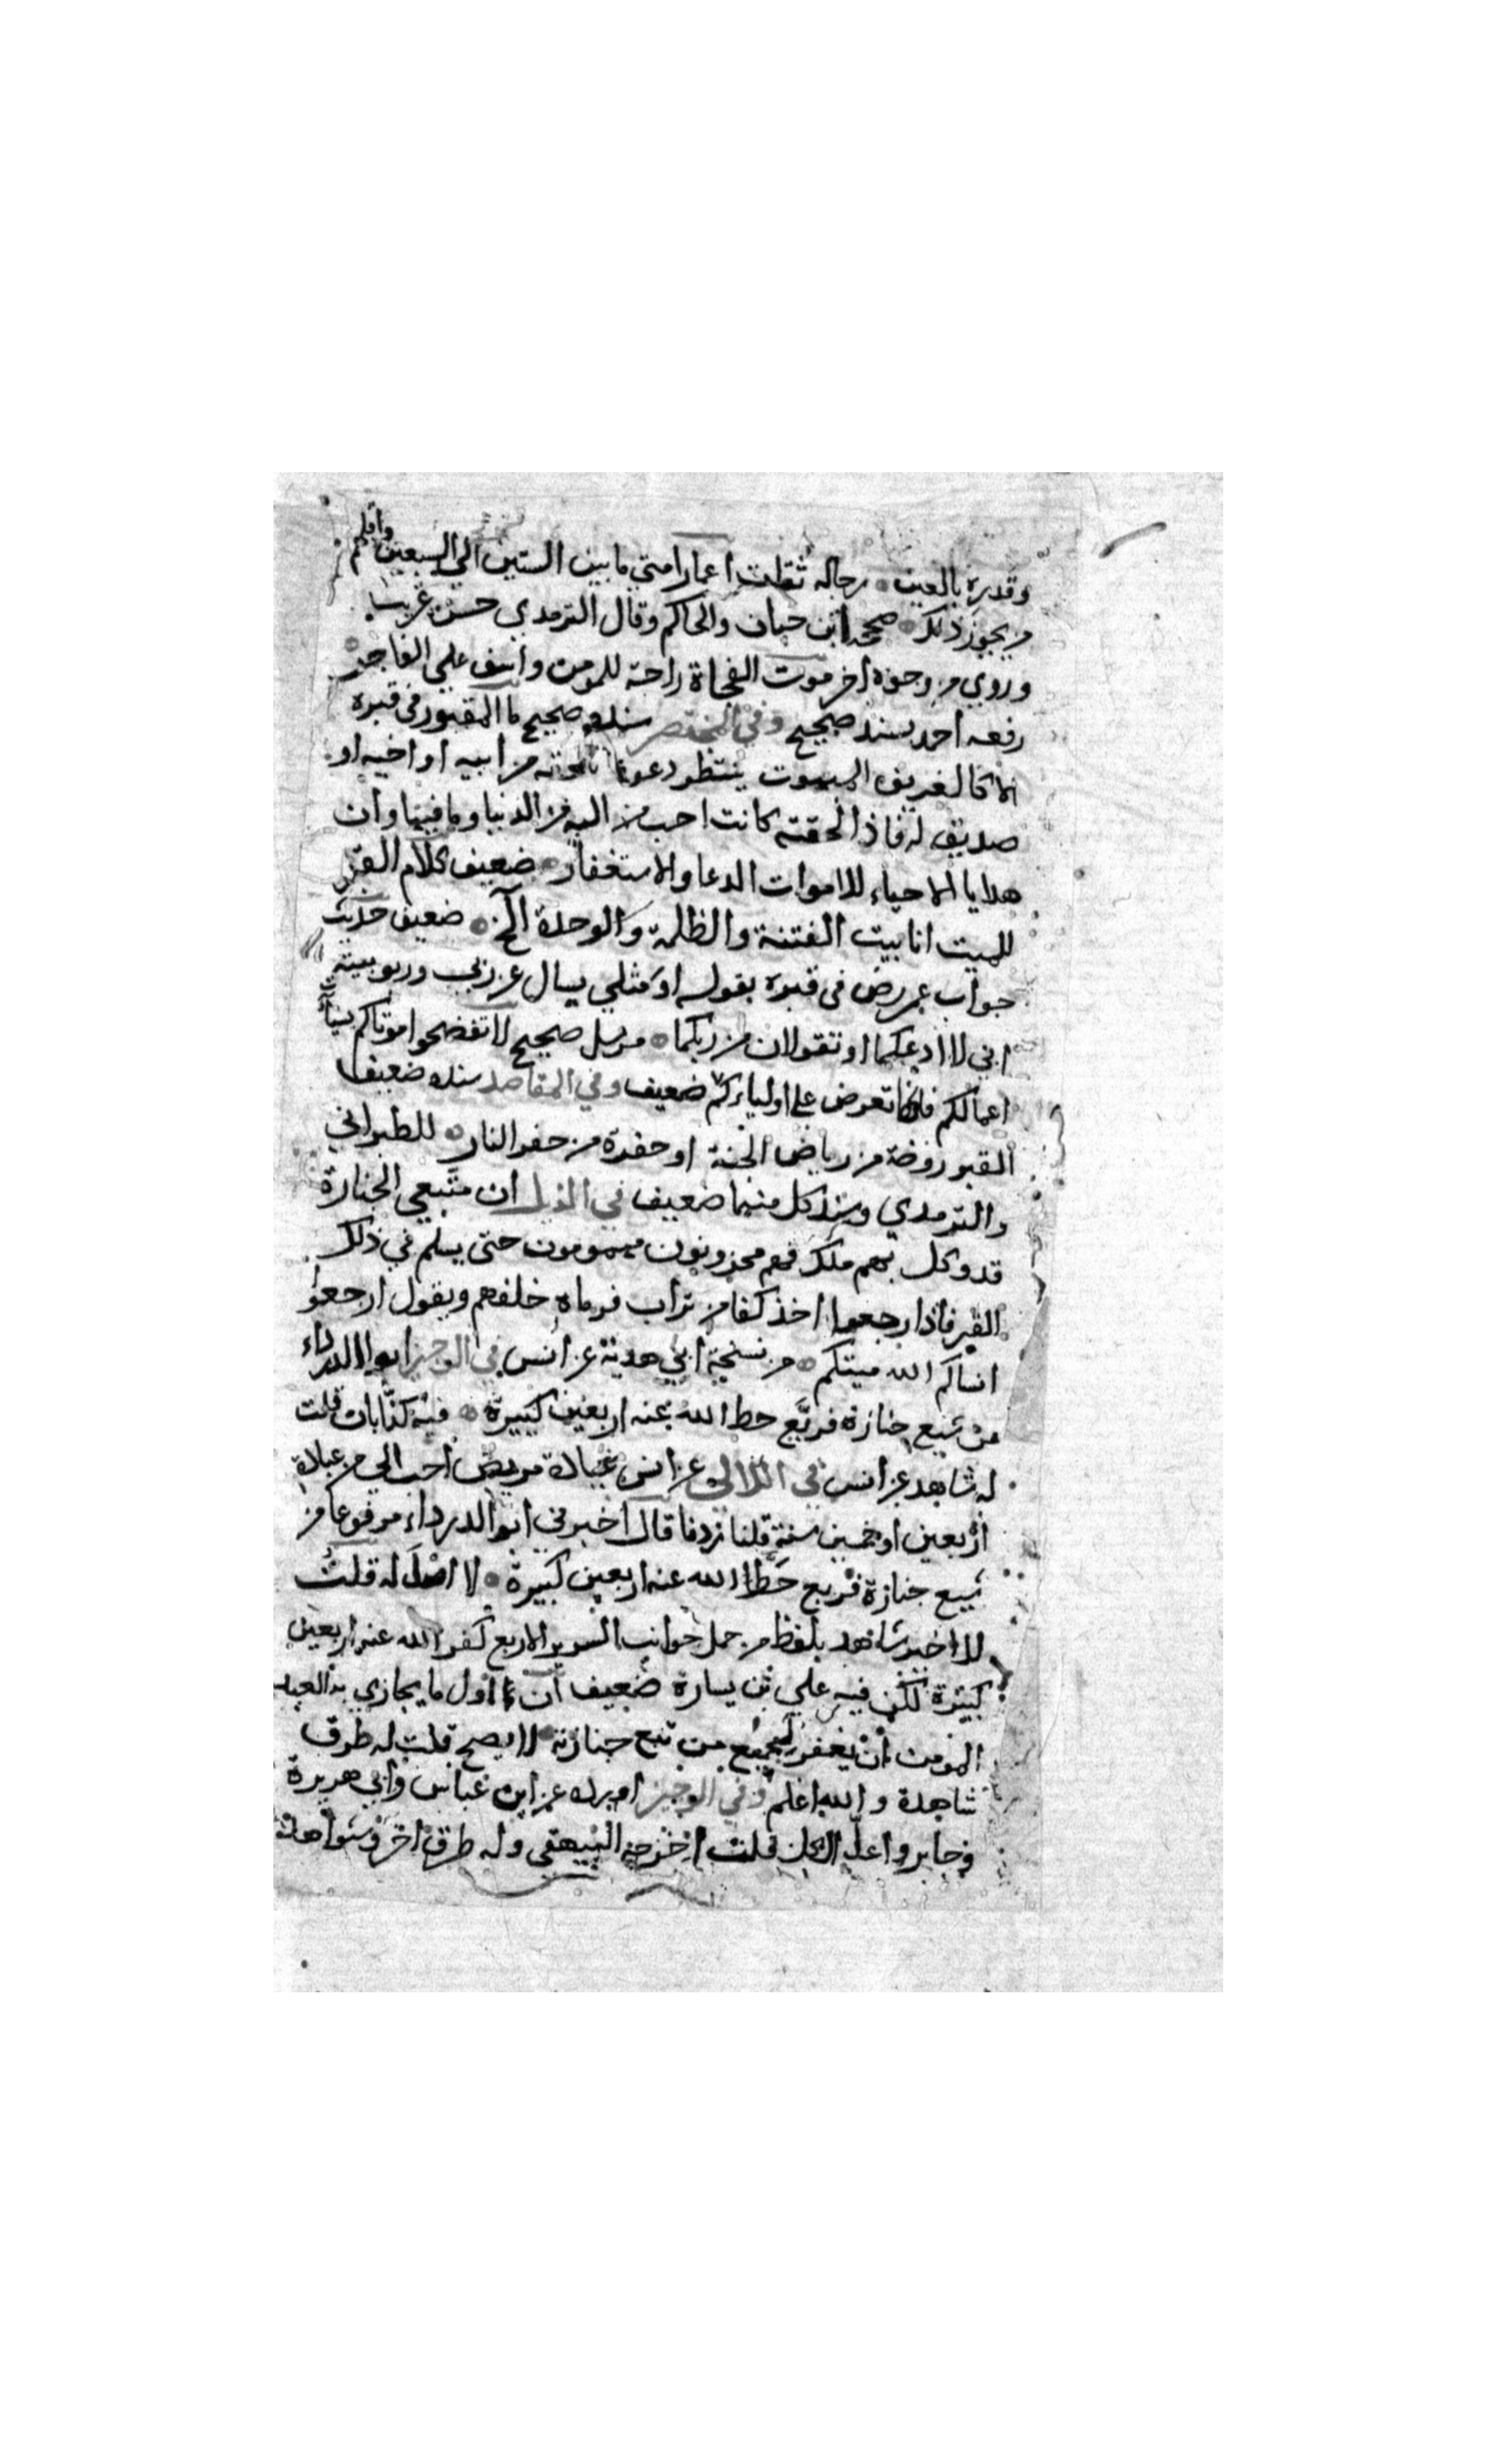 وقدره بالعين رجاله ثقات اعمار امتي ما بين الستين الي السبعين واقلهم
من يجوز ذلك صححه ابن حبان والحاكم وقال الترمدي حسن غريب
وروي من وجوه اخر موت الفجاة راحة للمومن واسف علي الفاجر
رفعه احمد بسند صحيح وفي المختصر سنده صحيح ما المقبور في قبره
الا كالغريق المبهوت ينتظر دعوة تلحقه من ابيه او اخيه او
صديق له فاذا لحقته كانت احب اليه من الدنيا وما فيها وان
هدايا الاحياء للاموات الدعا والاستغفار ضعيف كلام القبر
للميت انا بيت الفتنة والظلمة والوحدة الخ ضعيف حديث
جواب عمر رض في قبره بقوله او مثلي يسال عن ربي وربوبيته
اني لا ادعكما او تقولان من ربكما مرسل صحيح لا تفضحوا موتاكم بسيات
اعمالكم فانها تعرض علي اوليائكم ضعيف وفي المقاصد سنده ضعيف
القبر روضة من رياض الجنة او حفرة من حفر النار للطبراني
والترمدي وسند كل منهما ضعيف في الذيل ان متبعي الجنازة
قد وكل بهم ملك فهم محزونون مهمومون حتى يسلم في ذلك
القبر فاذا رجعوا اخذ كفا من تراب فرماه خلفهم ويقول ارجعوا
انساكم الله ميتكم من نسخة ابي هدبة عن انس في الوجيز ابو الدرداء
من شيع جنازة فربع حط الله عنه اربعين كبيرة فيه كذابان قلت
له شاهد عن انس في اللالي عن انس عيادة مريض احب الي من عبادة
اربعين او خمسين سنة قلنا زدنا قال اخبرني ابو الدرداء مرفوعا من
شيع جنازة فربع حط الله عنه اربعين كبيرة لا اصل له قلت
للاخير شاهد بلفظ من حمل جوانب السرير الاربع كفر الله عنه اربعين
كبيرة لكن فيه علي بن يسارة ضعيف ان اول ما يجازي به العبد
المومن ان يغفر لجميع من تبع جنازته لا يصح قلت له طرق
شاهدة والله اعلم وفي الوجيز اورده عن ابن عباس وابي هريرة
وجابر واعل الكل قلت اخرجه البيهقي وله طرق اخر وشواهد